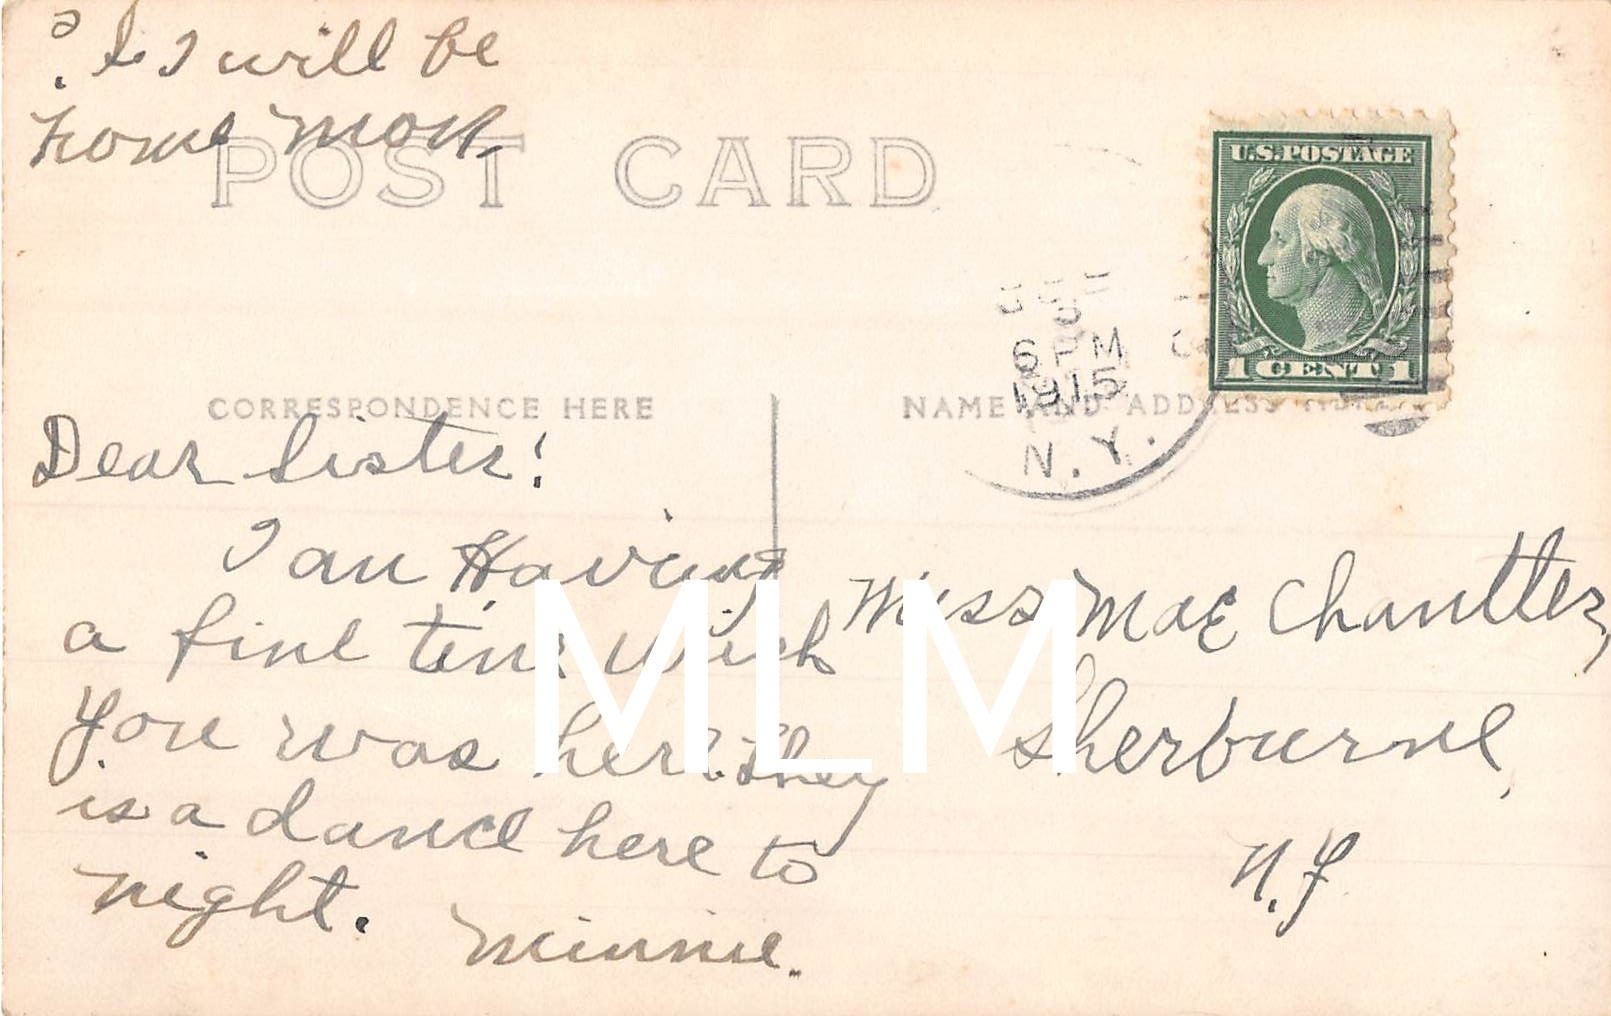 I will be
Home Mon.
POST CARD
U.S. POSTAGE
1 CENT 1
6 PM
1915
N.Y.
CORRESPONDENCE HERE
NAME AND ADDRESS HERE
Dear Sister!
I am Having
a fine time wish
you was here. They
is a dance here to
night.
Minnie.
Miss Mae Chantler,
Sherburne,
N.Y
MLM